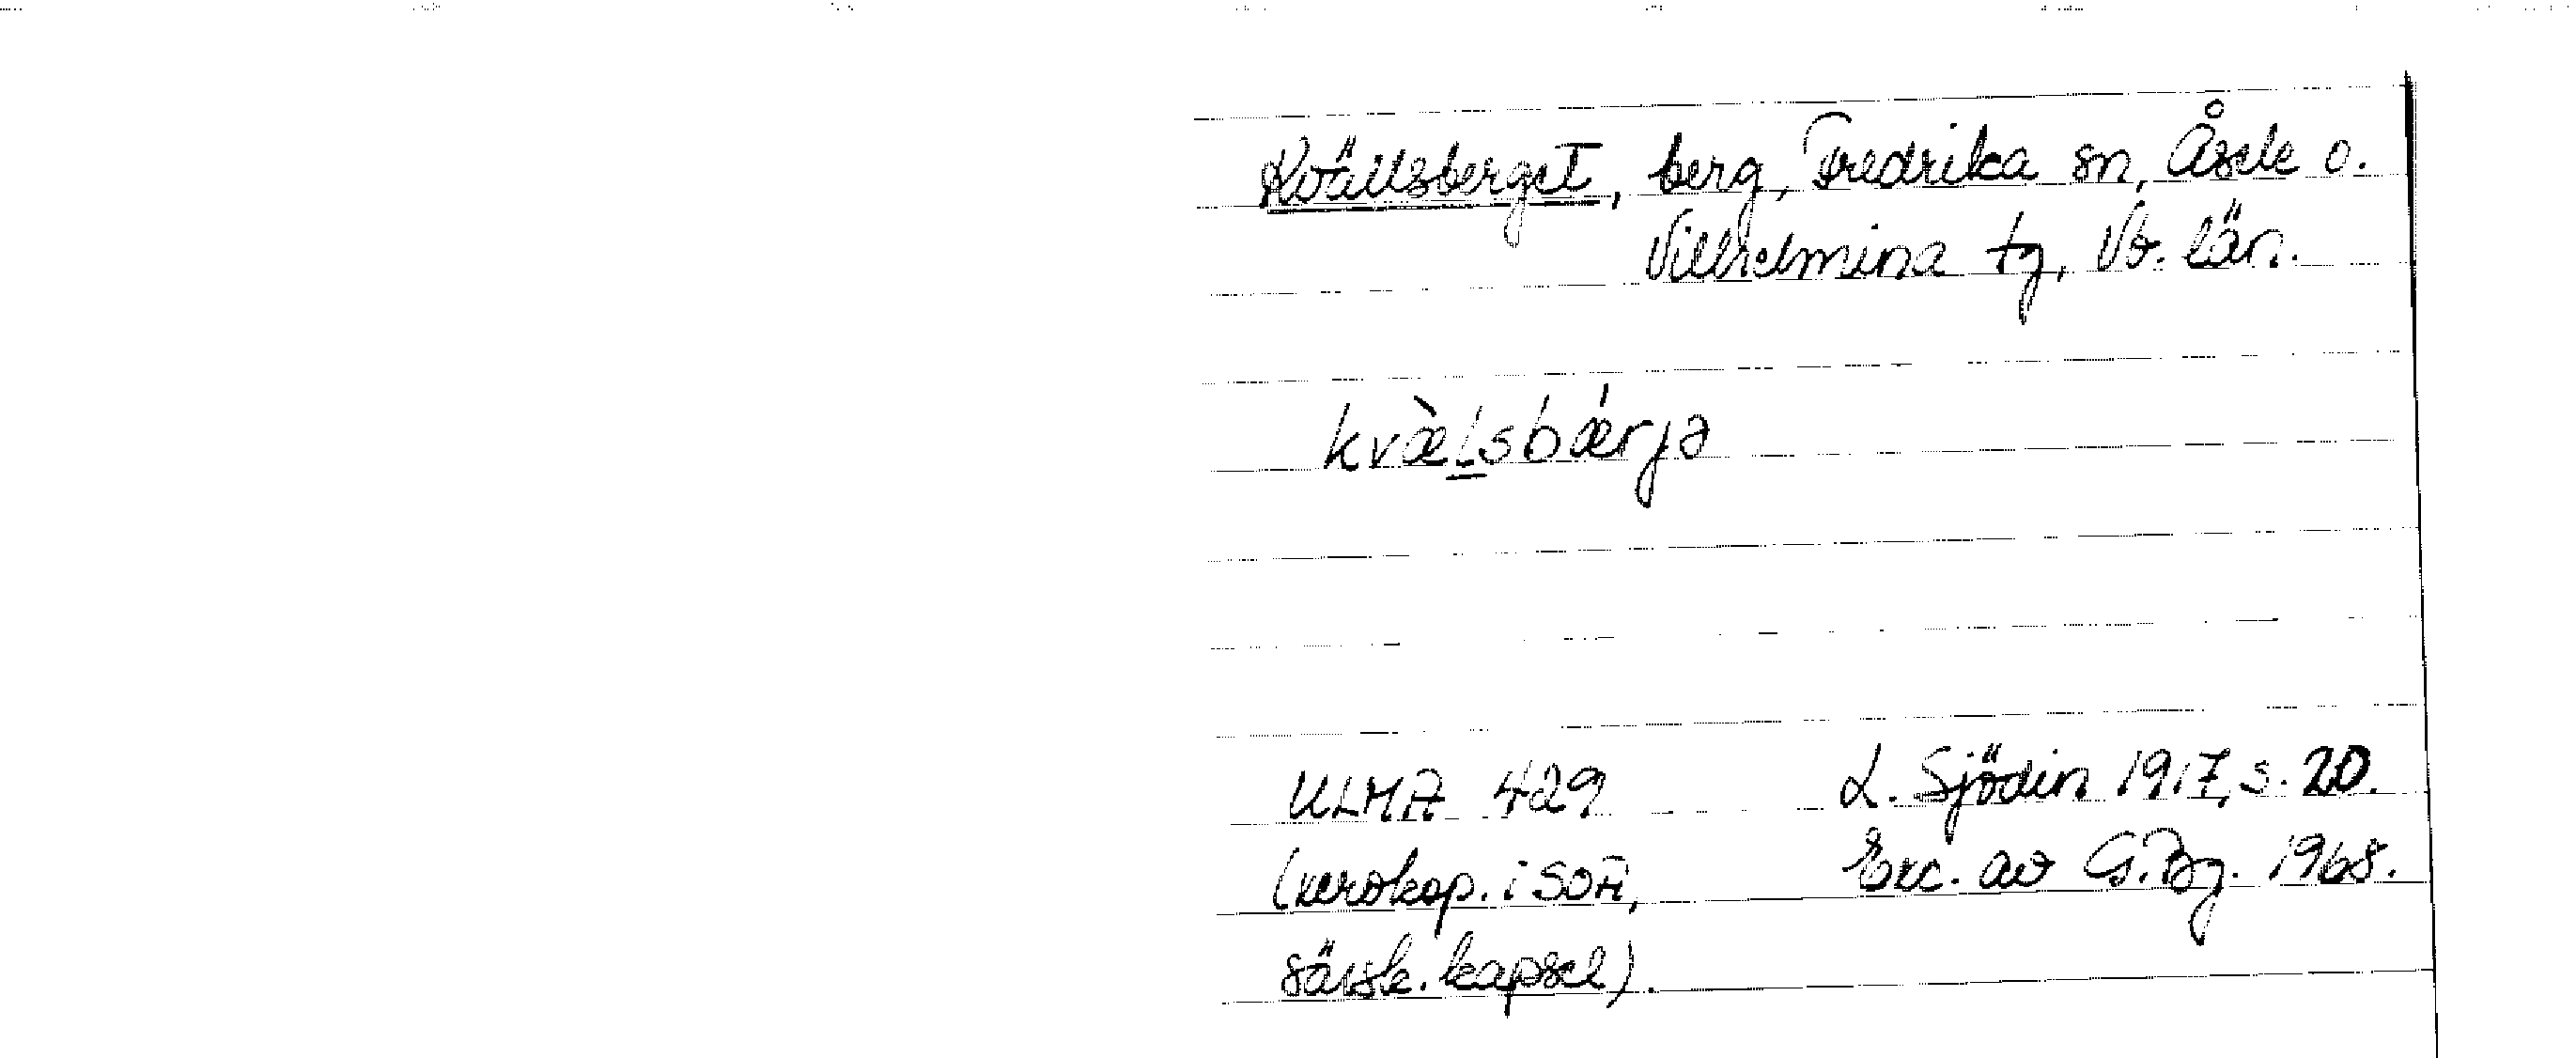 Kvällsberget, berg, Fredrika sn, Åsele o.
Vilhelmina tg, Vb. län.
kvæ̀lsbǽrjə
ULMA 429 L. Sjödin 1917, s. 20.
(xerokop. i SOA, Exc. av G. Bg. 1968.
särsk. kapsel).